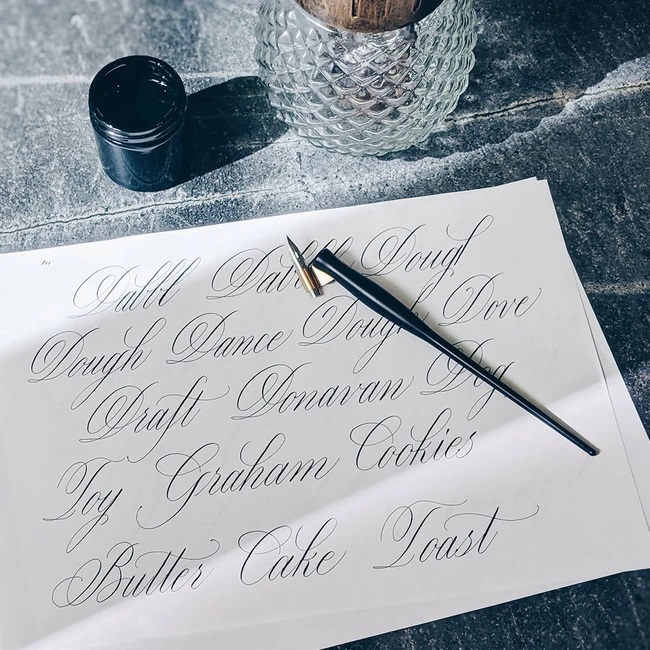 Dabbl Dough
Dough Dance Dough Dove
Draft Donavan Dog
Toy Graham Cookies
Butter Cake Toast